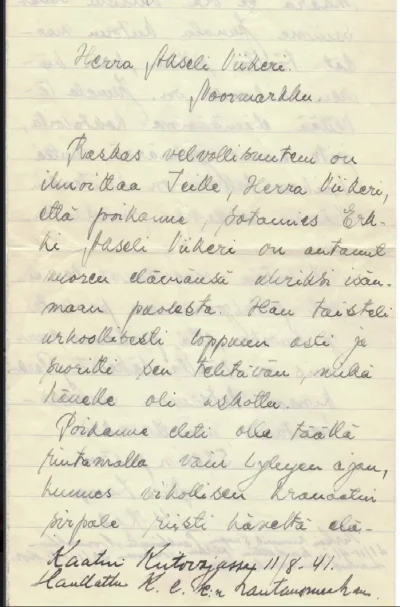 Herra Akseli Viikeri.
Noormarkku.
Raskas velvollisuuteni on
ilmoittaa Teille, Herra Viikeri,
että poikanne, sotamies Erk-
ki Akseli Viikeri on antanut
nuoren elämänsä uhriksi isän-
maan puolesta. Hän taisteli
urhoollisesti loppuun asti ja
suoritti sen tehtävän, mikä
hänelle oli uskottu.
Poikanne ehti olla täällä
rintamalla vain lyhyen ajan,
kunnes vihollisen kranaatin
sirpale riisti häneltä elä-
Kaatui 11/8-41.
Haudattu K. E. K:n hautausmaahan.